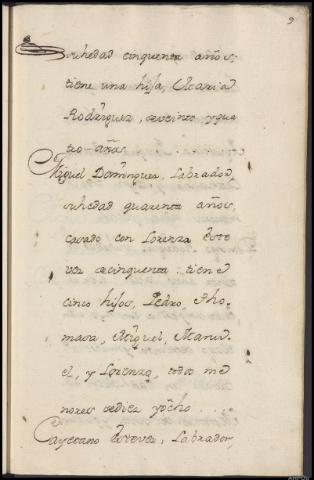 9
suhedad cinquenta años,
tiene una hija, Maria
Rodriguez, de veinte y qua
tro años
Miguel Dominguez, Labrador,
suhedad quarenta años,
casado con Lorenza Este
vez de cinquenta: tiene
cinco hijos, Pedro, Tho-
masa, Miguel, Manu-
el, y Lorenza, todos me
nores de diez y ocho....
Cayetano Estevez, Labrador,